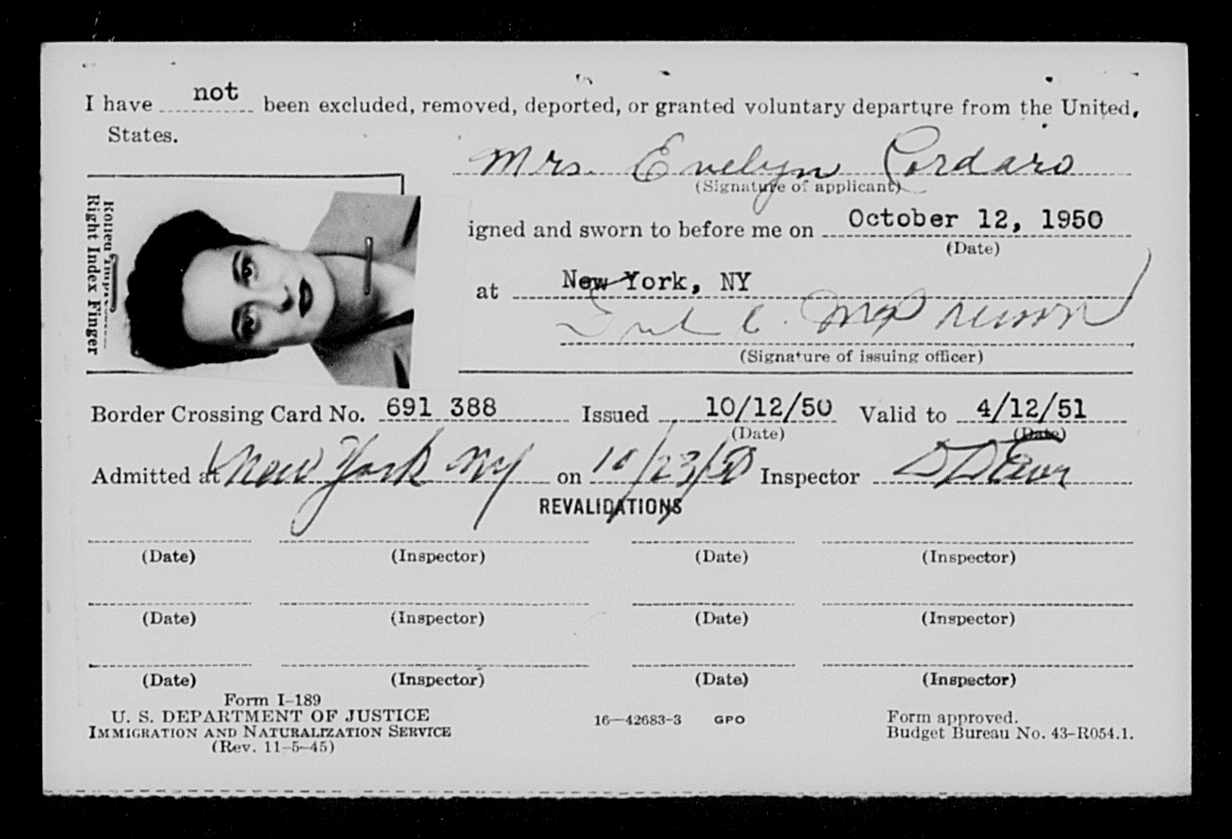 I have not been excluded, removed, deported, or granted voluntary departure from the United
States.
Mrs. Evelyn Cordaro
(Signature of applicant)
Rolled
Right Index Finger
igned and sworn to before me on October 12, 1950
(Date)
at New York, NY
(Signature of issuing officer)
Border Crossing Card No. 691 388 Issued 10/12/50 Valid to 4/12/51
(Date) (Date)
Admitted at New York NY on 10/23/50 Inspector
REVALIDATIONS
(Date) (Inspector) (Date) (Inspector)
(Date) (Inspector) (Date) (Inspector)
(Date) (Inspector) (Date) (Inspector)
Form I-189
U. S. DEPARTMENT OF JUSTICE 16—42683-3 GPO Form approved.
IMMIGRATION AND NATURALIZATION SERVICE Budget Bureau No. 43-R054.1.
(Rev. 11-5-45)